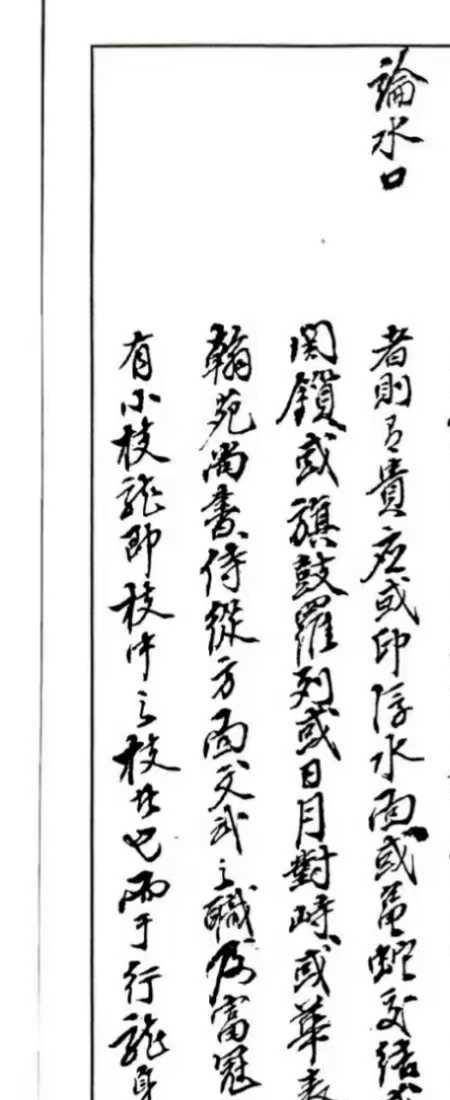 論水口
者則貴应或印浮水面或龜蛇交结或
関鎖或旗鼓羅列或日月對峙或華表
翰苑尚書侍從方面文武之職及富冠
有小枝龍即枝中之枝也而于行龍身